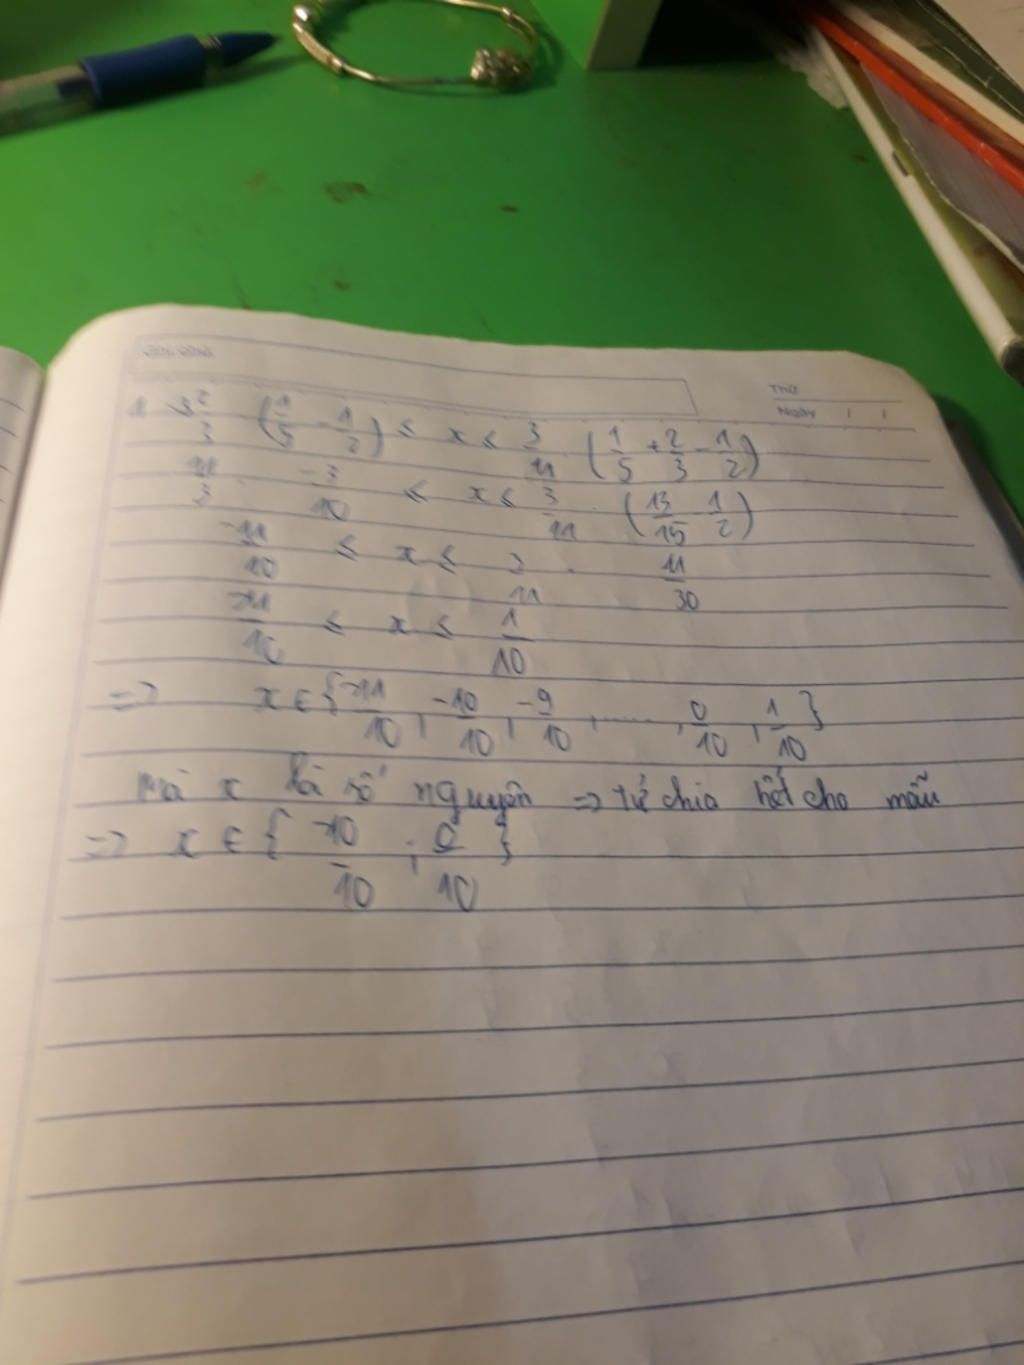 Thứ
Ngày / /
3 2/3 (1/5 - 1/2) ≤ x ≤ 3/11 (1/5 + 2/3 - 1/2)
11/3 . -3/10 ≤ x ≤ 3/11 . (13/15 - 1/2)
-11/10 ≤ x ≤ 3/11 . 11/30
-11/10 ≤ x ≤ 1/10
=> x ∈ {-11/10 ; -10/10 ; -9/10 ; ...... ; 0/10 ; 1/10}
Mà x là số nguyên => tử chia hết cho mẫu
=> x ∈ { -10/10 ; 0/10 }